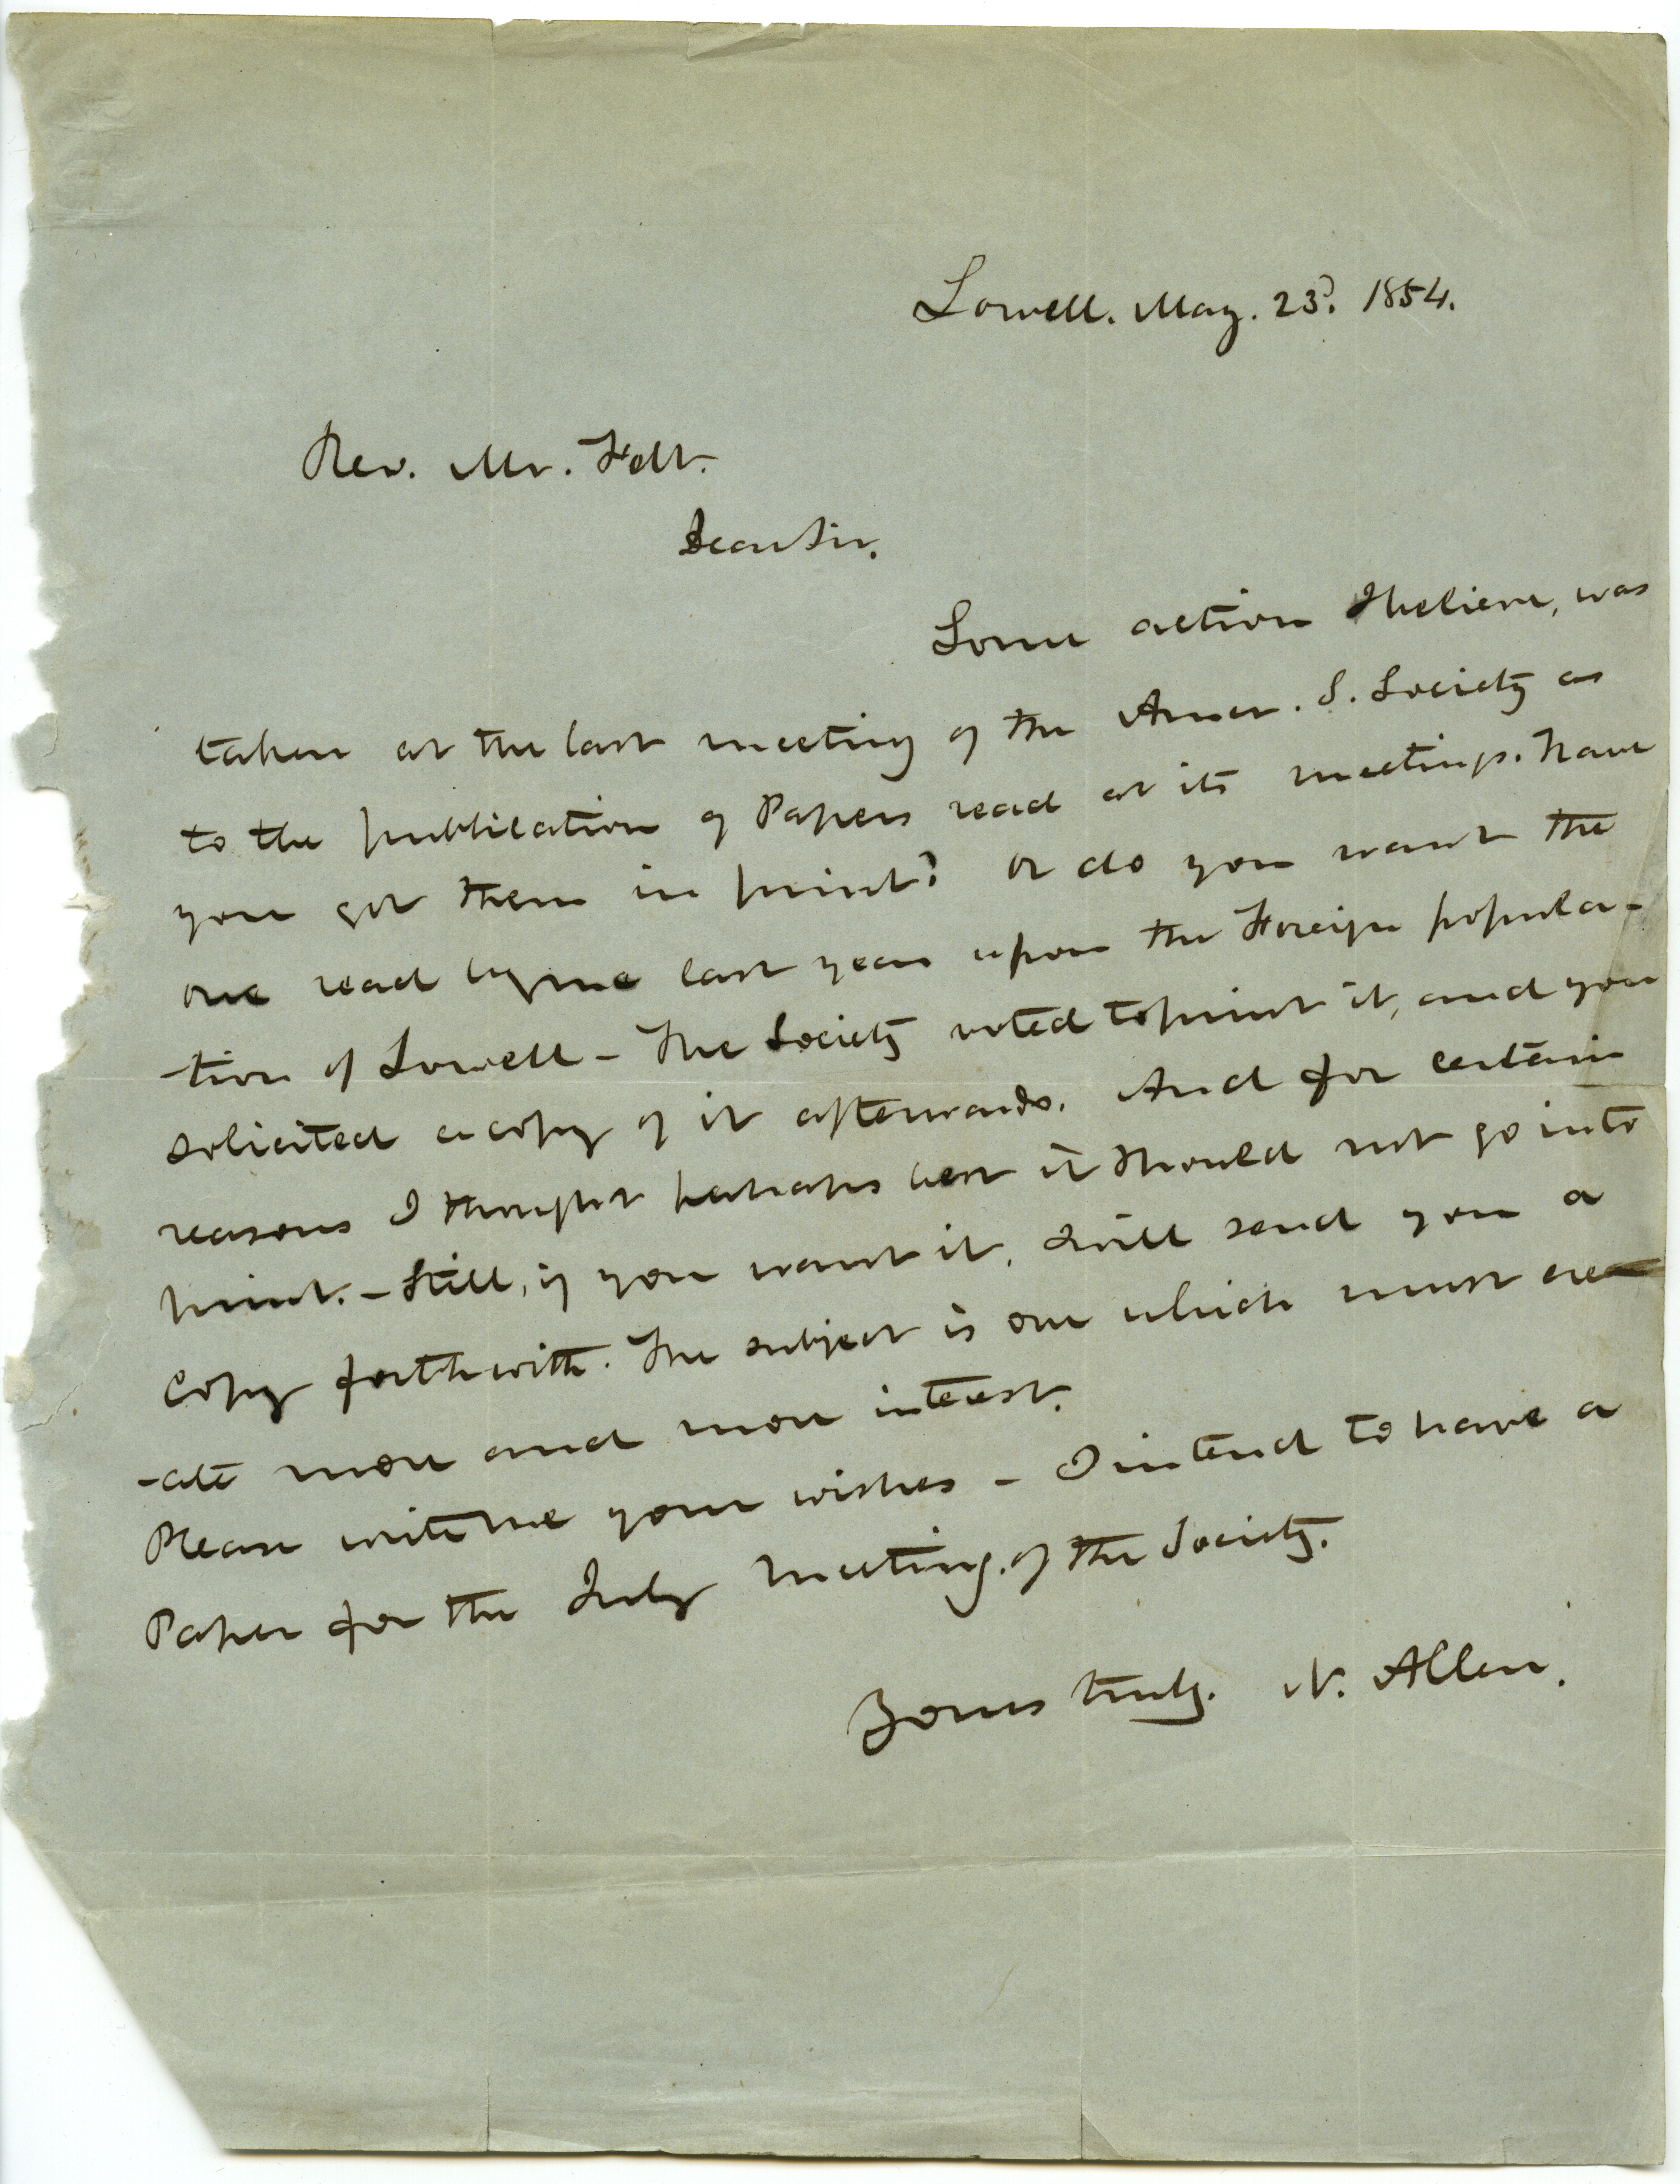 Lowell. May. 23? 1854.
Rev. Mr. Felt.
Dear Sir.
Some action I believe, was
taken at the last meeting of the Amer. S. Society as
to the publication of Papers read at its meetings. Have
you got them in print? Or do you want the
one read by me last year upon the Foreign popula-
-tion of Lowell - The Society voted to print it, and you
solicited a copy of it afterwards. And for certain
reasons I thought perhaps best it should not go into
print. - Still, if you want it, I will send you a
copy forthwith. The subject is one which must cre-
-ate more and more interest.
Please write me your wishes - I intend to have a
Paper for the July meeting. of the Society.
Yours truly. N. Allen.